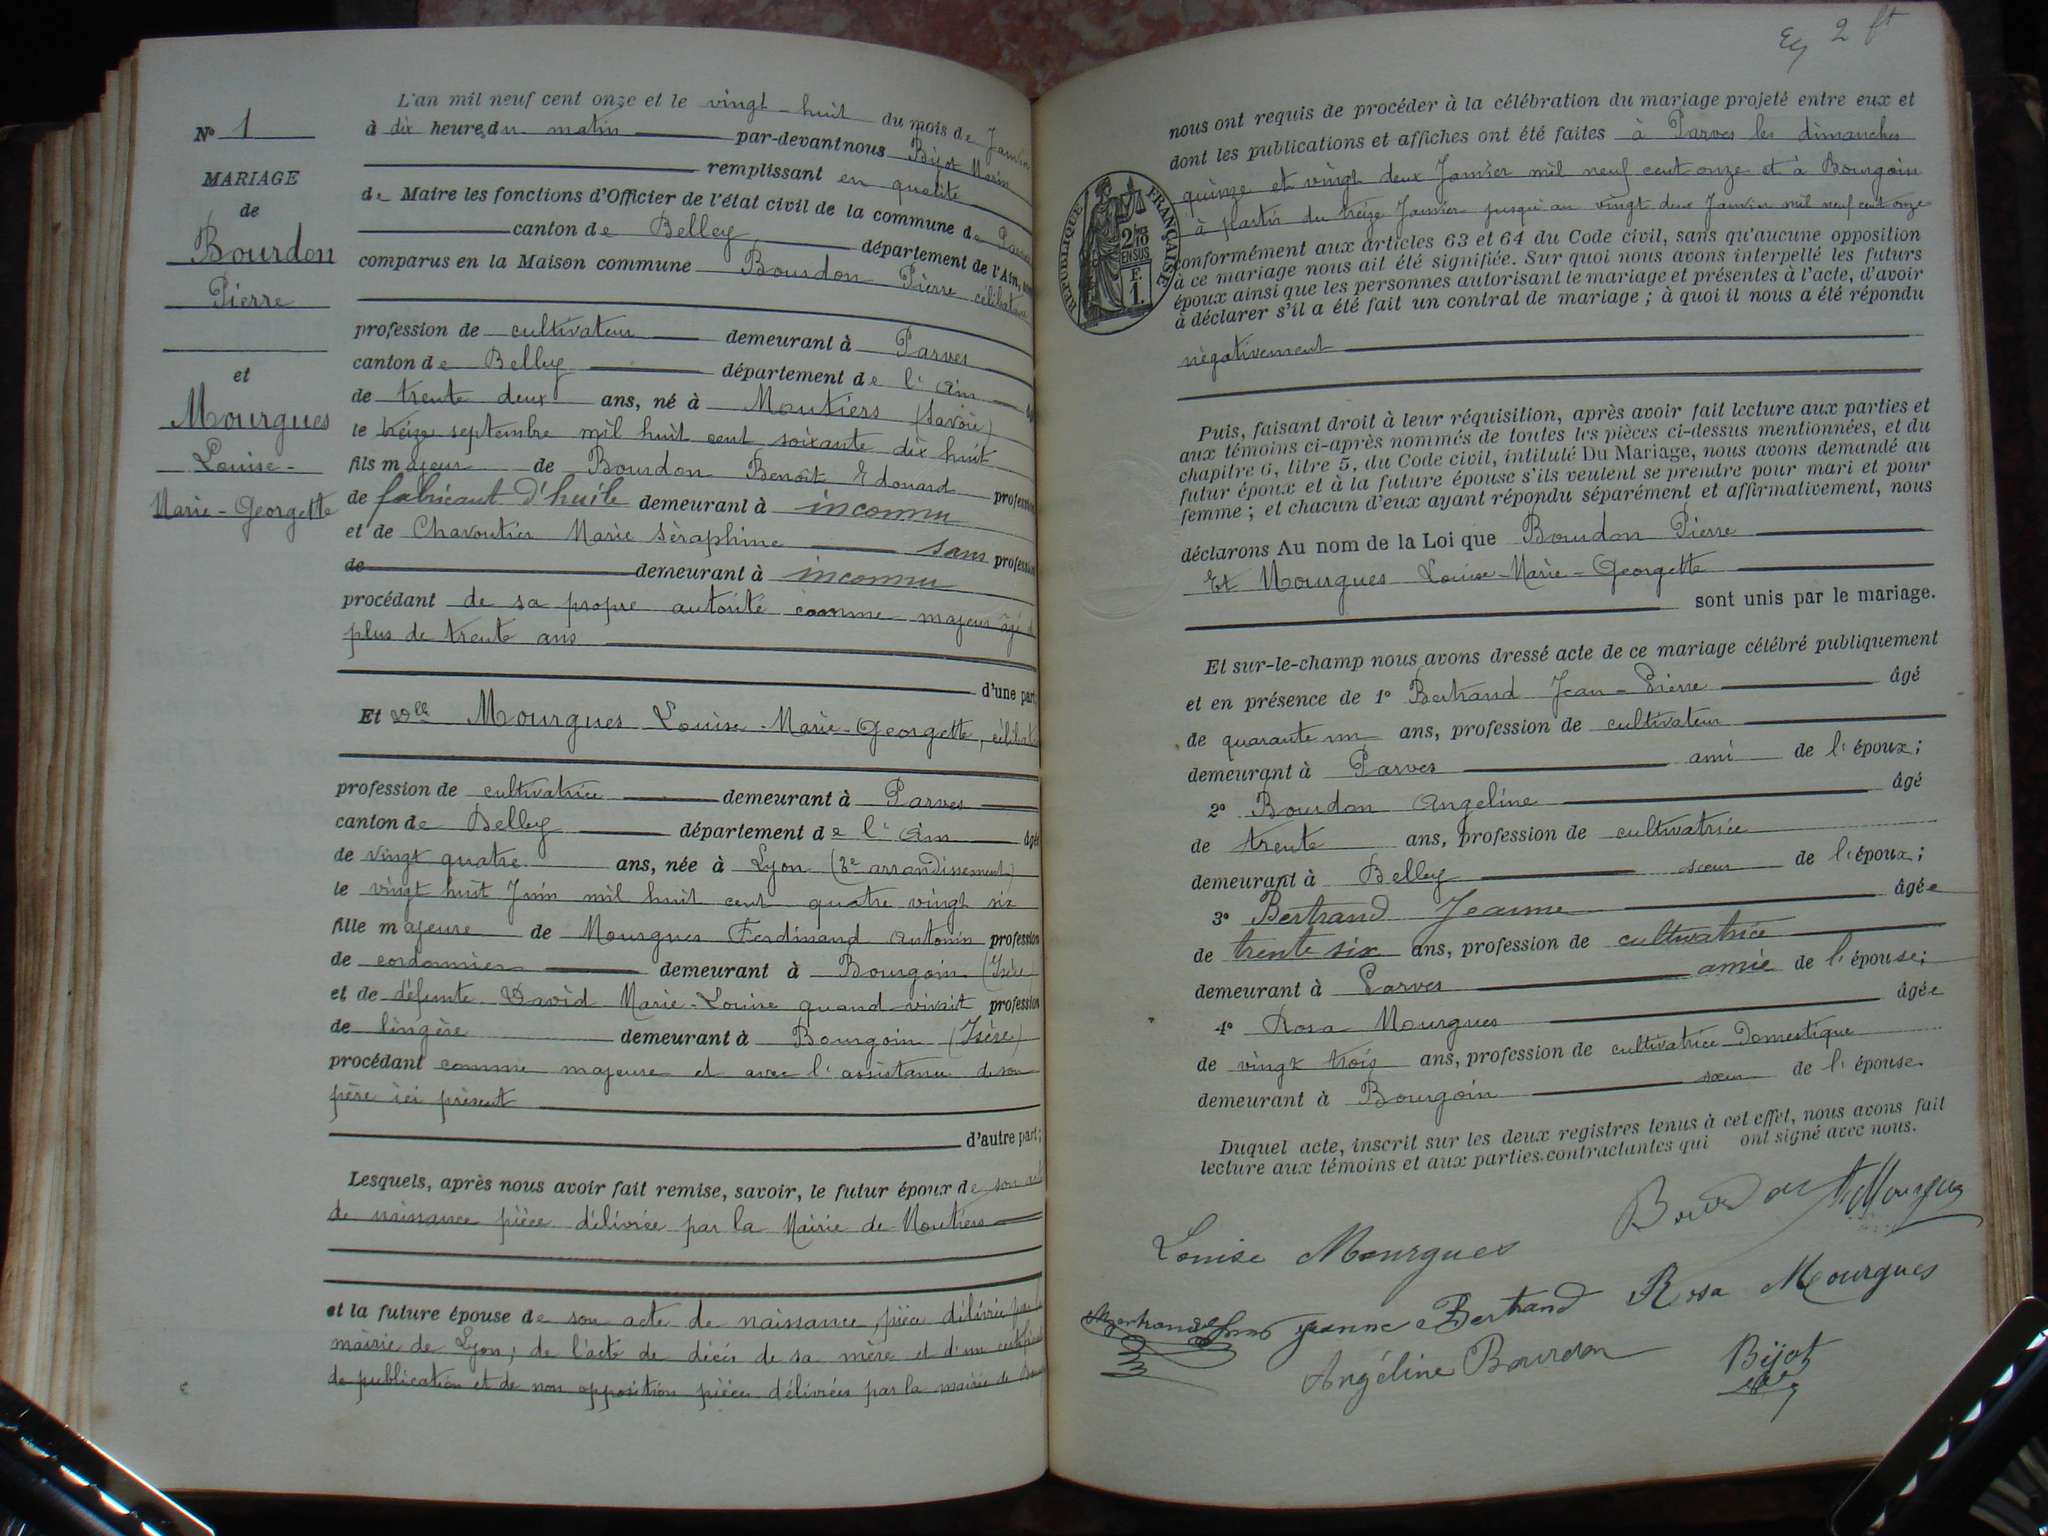 N° 1
MARIAGE
de
Bourdon
Pierre
et
Mourgues
Louise-
Marie-Georgette
L'an mil neuf cent onze et le vingt-huit du mois de
à dix heures du matin par-devant nous Bijot
remplissant en qualité
de Maire les fonctions d'Officier de l'état civil de la commune de
canton de Belley département de l'Ain,
comparus en la Maison commune Bourdon Pierre célibataire
profession de cultivateur demeurant à Parves
canton de Belley département de l'Ain
de trente deux ans, né à Moutiers (Savoie)
le treize septembre mil huit cent soixante dix huit
fils majeur de Bourdon Benoît Edouard profession
de fabricant d'huile demeurant à inconnu
et de Chavoutier Marie Séraphine sans profession
de demeurant à inconnu
procédant de sa propre autorité comme majeur âgé de
plus de trente ans
d'une part;
Et Dlle Mourgues Louise-Marie-Georgette,
profession de cultivatrice demeurant à Parves
canton de Belley département de l'Ain âgée
de vingt quatre ans, née à Lyon (3e arrondissement)
le vingt huit Juin mil huit cent quatre vingt six
fille majeure de Mourgues Ferdinand Antonin profession
de cordonnier demeurant à Bourgoin (Isère)
et de défunte David Marie-Louise quand vivait profession
de lingère demeurant à Bourgoin (Isère)
procédant comme majeure et avec l'assistance de son
père ici présent
d'autre part;
Lesquels, après nous avoir fait remise, savoir, le futur époux de son acte
de naissance pièce délivrée par la Mairie de Moutiers
et la future épouse de son acte de naissance, pièce délivrée par la
mairie de Lyon, de l'acte de décès de sa mère et d'un certificat
de publication et de non opposition pièces délivrées par la mairie de
2 ft
nous ont requis de procéder à la célébration du mariage projeté entre eux et
dont les publications et affiches ont été faites à Parves les dimanches
quinze et vingt deux Janvier mil neuf cent onze et à Bourgoin
à partir du treize Janvier jusqu'au vingt deux Janvier mil neuf cent onze
RÉPUBLIQUE FRANÇAISE
2/10
EN SUS
F.
1.
conformément aux articles 63 et 64 du Code civil, sans qu'aucune opposition
à ce mariage nous ait été signifiée. Sur quoi nous avons interpellé les futurs
époux ainsi que les personnes autorisant le mariage et présentes à l'acte, d'avoir
à déclarer s'il a été fait un contrat de mariage; à quoi il nous a été répondu
négativement
Puis, faisant droit à leur réquisition, après avoir fait lecture aux parties et
aux témoins ci-après nommés de toutes les pièces ci-dessus mentionnées, et du
chapitre 6, titre 5, du Code civil, intitulé Du Mariage, nous avons demandé au
futur époux et à la future épouse s'ils veulent se prendre pour mari et pour
femme; et chacun d'eux ayant répondu séparément et affirmativement, nous
déclarons Au nom de la Loi que Bourdon Pierre
Et Mourgues Louise-Marie-Georgette
sont unis par le mariage.
Et sur-le-champ nous avons dressé acte de ce mariage célébré publiquement
et en présence de 1° Bertrand Jean-Pierre âgé
de quarante un ans, profession de cultivateur
demeurant à Parves ami de l'époux;
2° Bourdon Angeline âgé
de trente ans, profession de cultivatrice
demeurant à Belley sœur de l'époux;
3° Bertrand Jeanne âgée
de trente six ans, profession de cultivatrice
demeurant à Parves amie de l'épouse;
4° Rosa Mourgues âgée
de vingt trois ans, profession de cultivatrice Domestique
demeurant à Bourgoin sœur de l'épouse.
Duquel acte, inscrit sur les deux registres tenus à cet effet, nous avons fait
lecture aux témoins et aux parties contractantes qui ont signé avec nous.
Bourdon Mourgues
Louise Mourgues
Jeanne Bertrand Rosa Mourgues
Angéline Bourdon Bijot